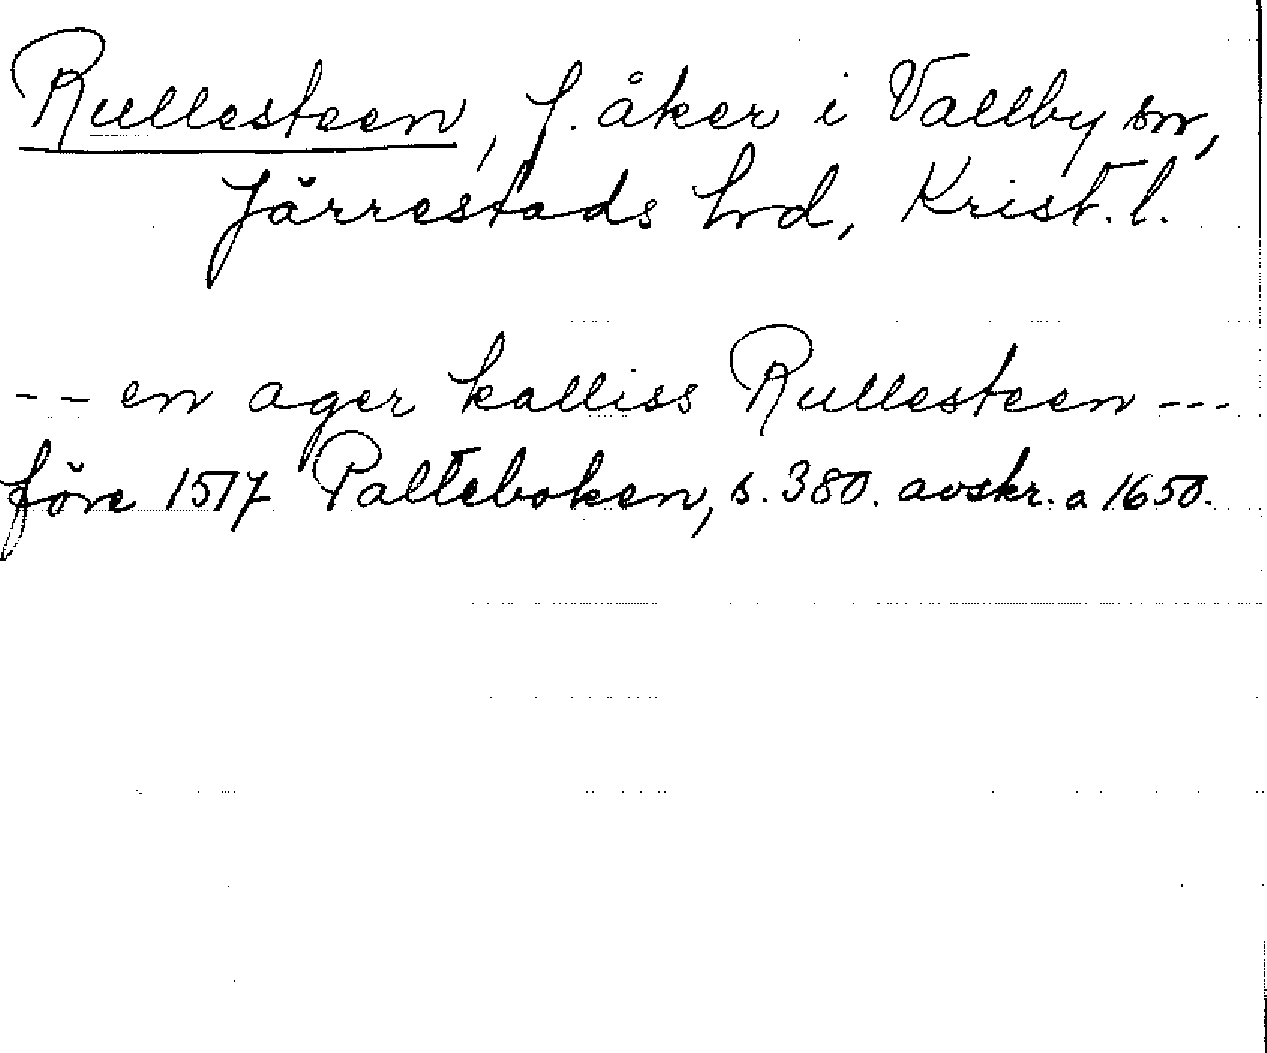 Rullesteen, f. åker i Vallby sn,
Järrestads hrd, Krist. l.
-- en ager kalliss Rullesteen ---
före 1517 Palteboken, s. 380. avskr. a 1650.